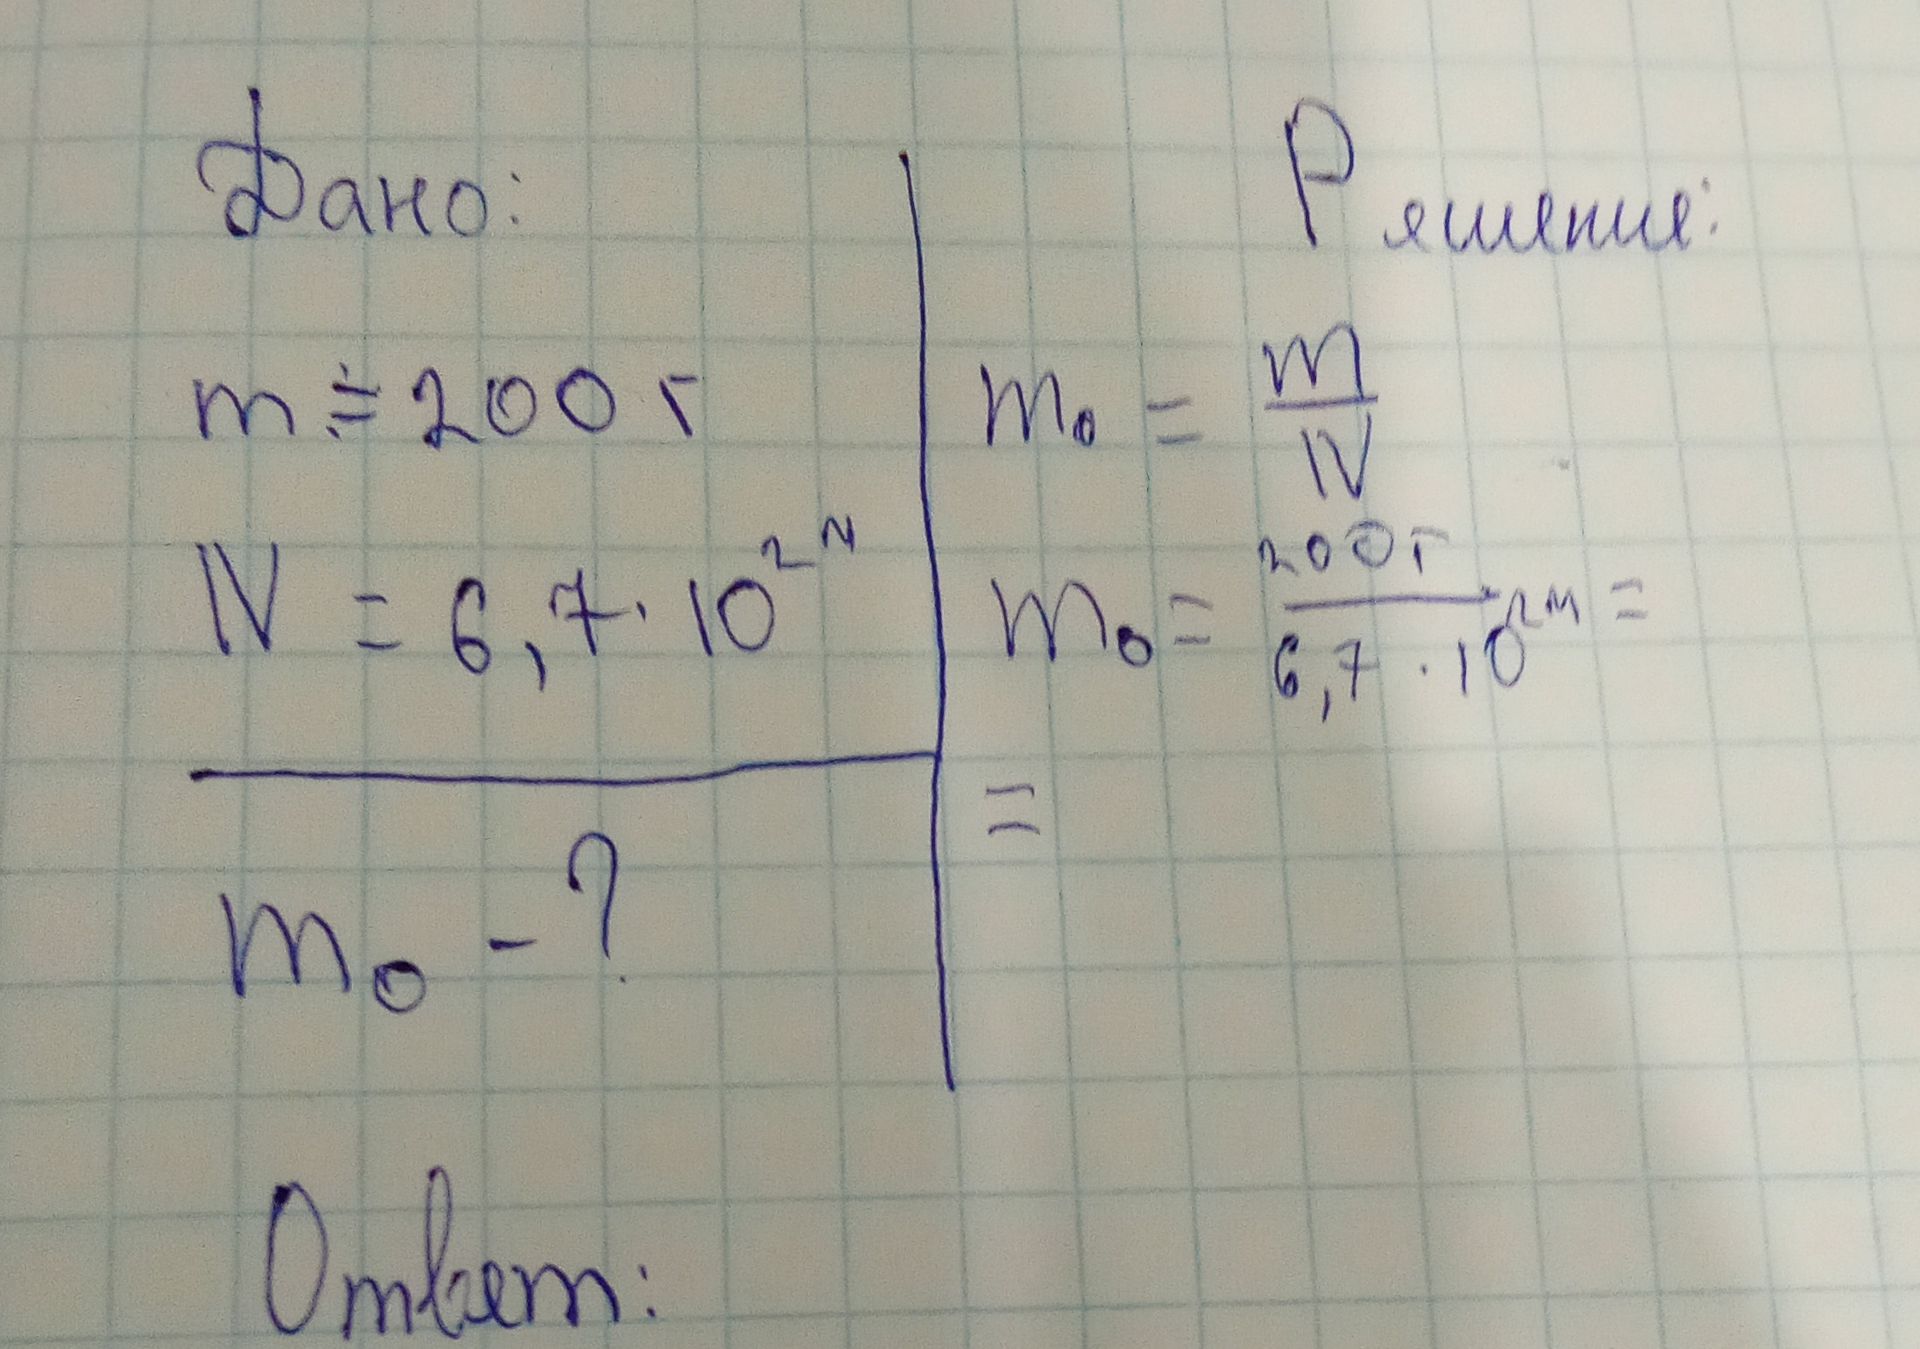 Дано:
m = 200 г
N = 6,7 · 10²⁴
m₀ - ?
Решение:
m₀ = m/N
m₀ = 200г/6,7 · 10²⁴ =
=
Ответ: